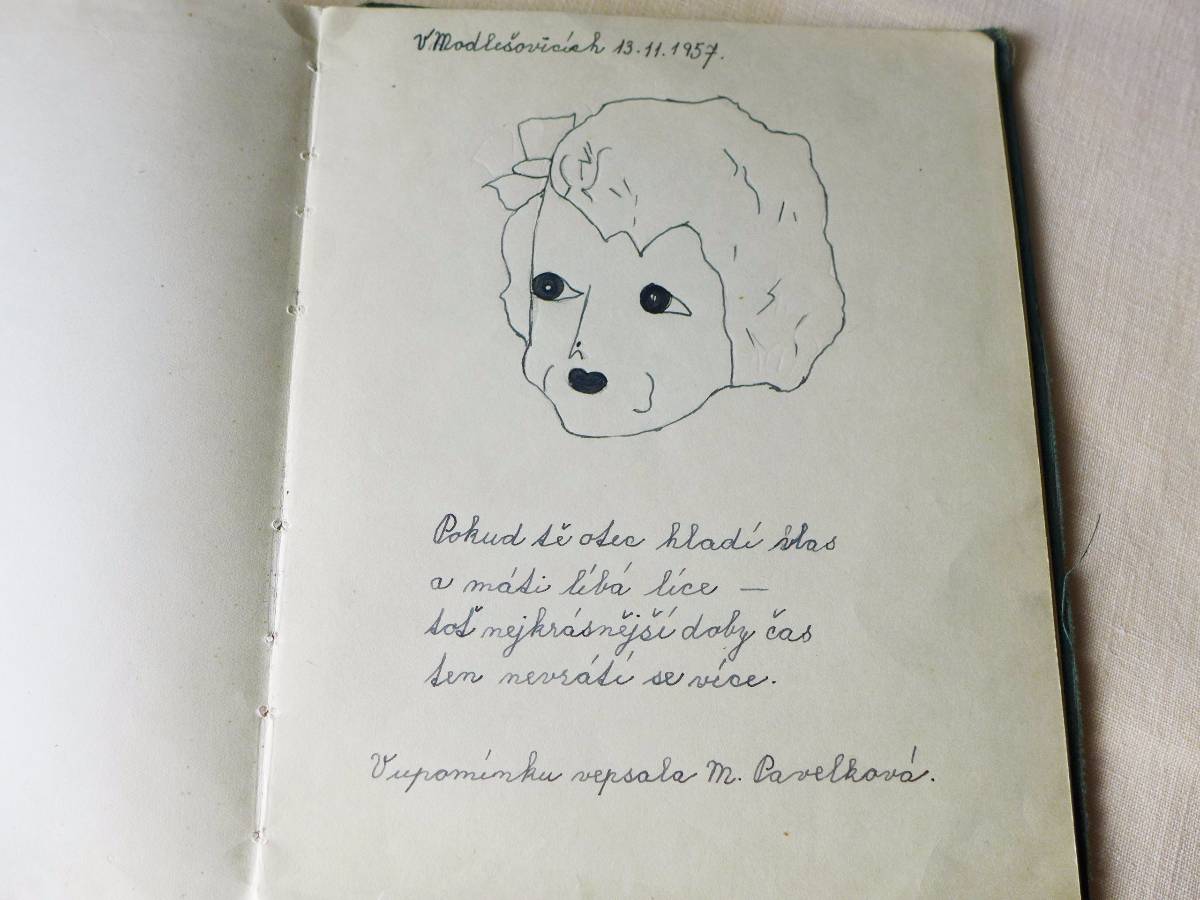 V Modlešovicích 13.11.1957.
Pokud tě otec hladí vlas
a máti líbá líce —
toť nejkrásnější doby čas
ten nevrátí se více.
V upomínku vepsala M. Pavelková.